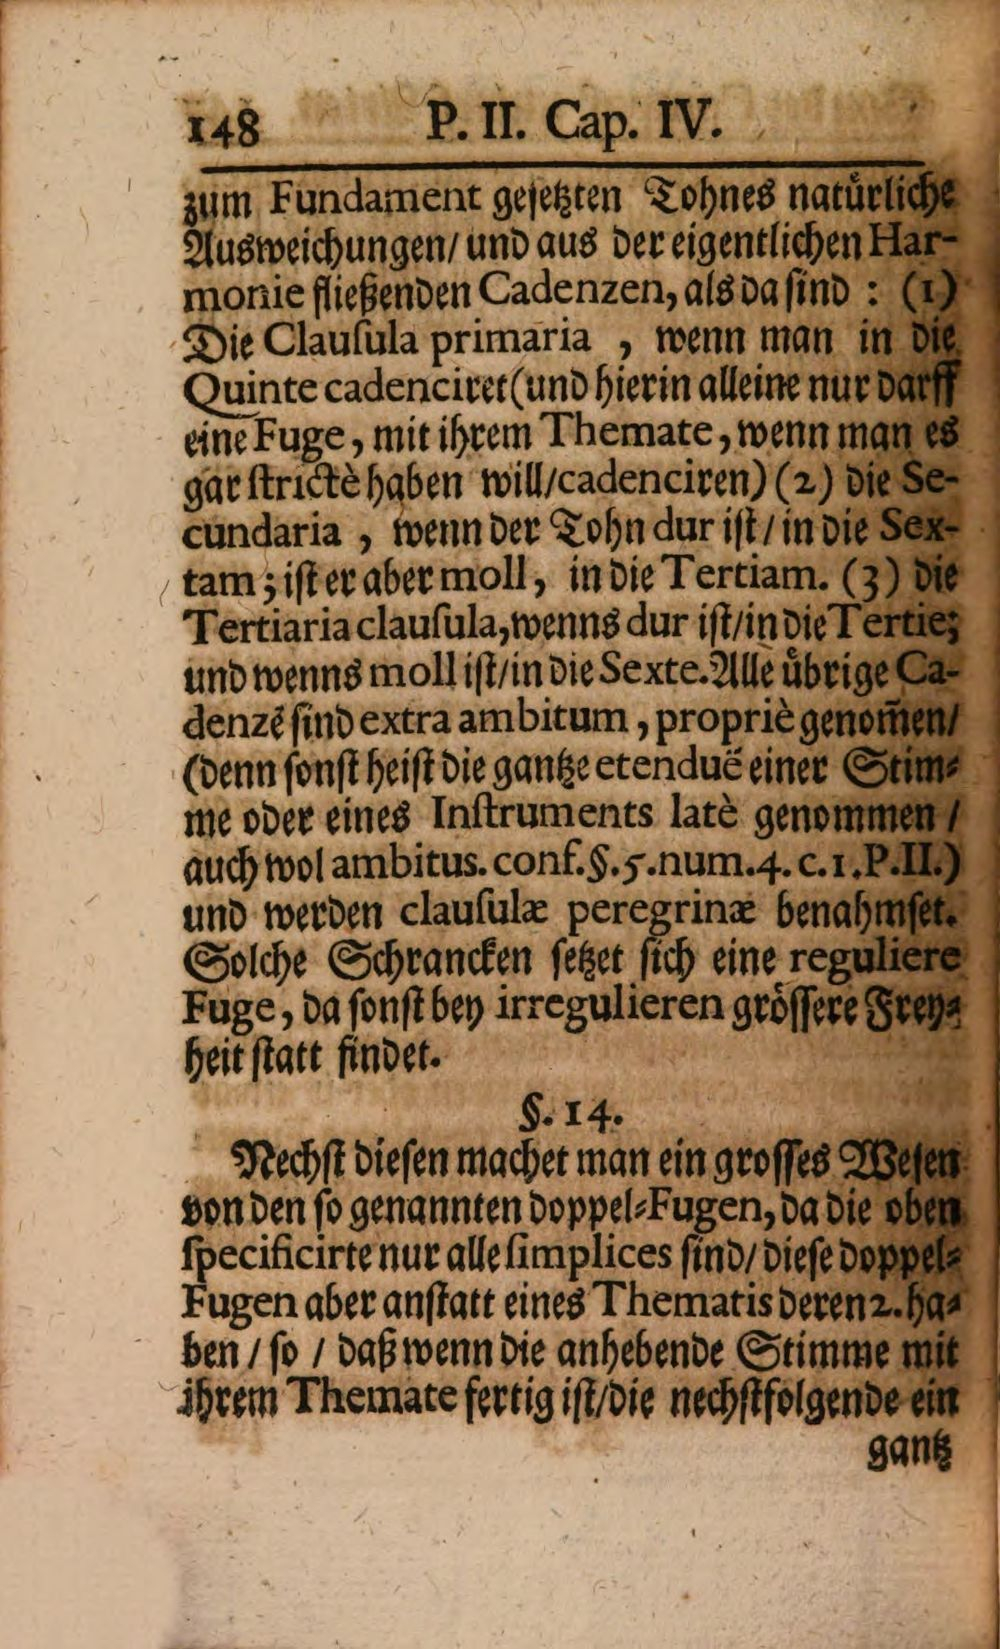 148 P. II. Cap. IV.
zum Fundament gesetzten Tohnes natůrliche
Ausweichungen/ und aus der eigentlichen Har-
monie fließenden Cadenzen, als da sind : (1)
Die Clausula primaria , wenn man in die
Quinte cadenciret (und hierin alleine nur darff
eine Fuge, mit ihrem Themate, wenn man es
gar strictè haben will/cadenciren) (2) die Se-
cundaria , wenn der Tohn dur ist / in die Sex-
tam; ist er aber moll, in die Tertiam. (3) die
Tertiaria clausula, wenns dur ist/in die Tertie;
und wenns moll ist/in die Sexte. Alle ůbrige Ca-
denzẽ sind extra ambitum, propriè genom̃en/
(denn sonst heist die gantze etenduë einer Stim-
me oder eines Instruments latè genommen /
auch wol ambitus. conf. §. 5. num. 4. c. 1. P. II.)
und werden clausulæ peregrinæ benahmset.
Solche Schrancken setzet sich eine reguliere
Fuge, da sonst bey irregulieren grössere Frey-
heit statt findet.
§. 14.
Nechst diesen machet man ein grosses Wesen
von den so genannten Doppel-Fugen, da die oben
specificirte nur alle simplices sind/ diese Doppel-
Fugen aber anstatt eines Thematis deren 2. ha-
ben / so / daß wenn die anhebende Stimme mit
ihrem Themate fertig ist/die nechstfolgende ein
gantz